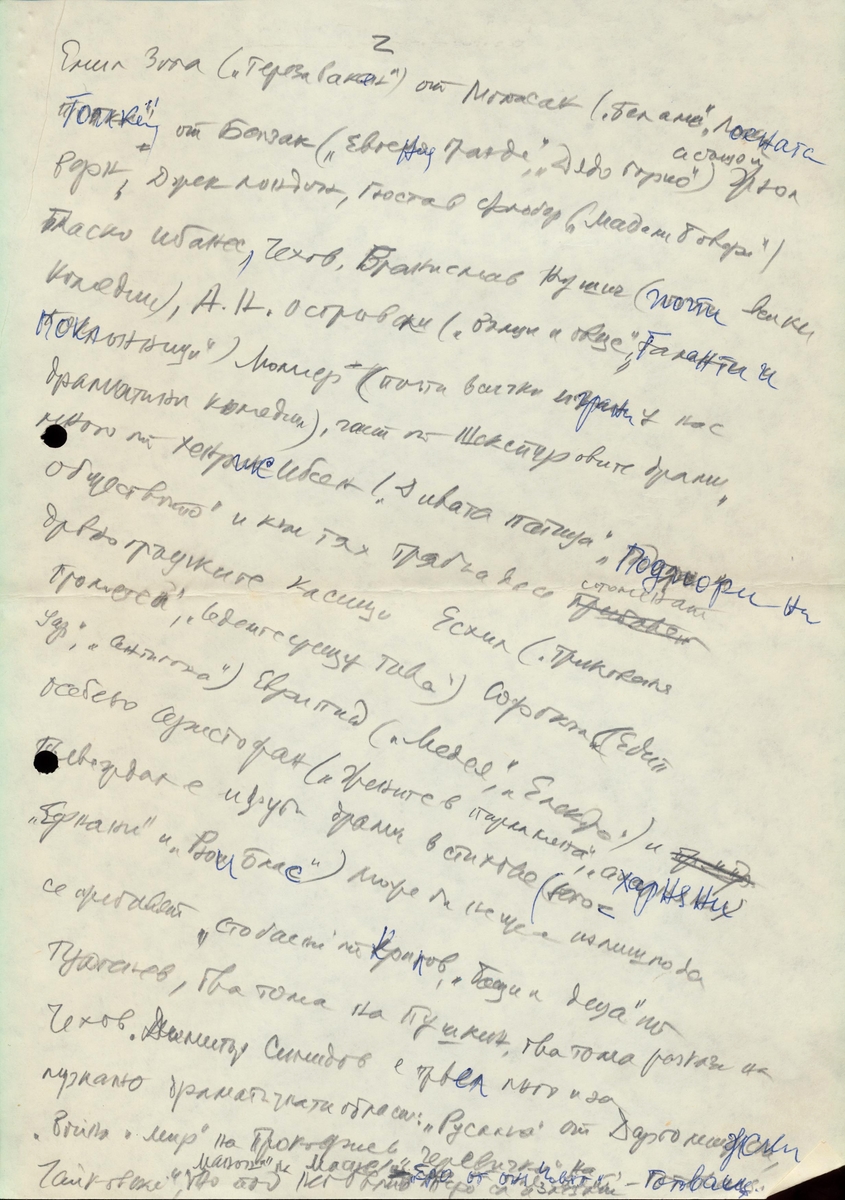 2
Емил Зола („Тереза Ракен") от Мопасан („Бел ами", Лоената
топка") от Балзак („Евгени Гранде", „Дядо Горио") Жюл
а също и
Верн, Джек Лондон, Гюстав Флобер („Мадам Бовари")
Бласко Ибанес, Чехов, Бранислав Нушич (почти всички
комедии), А. Н. Островски („Вълци и овце", „Таланти и
поклонници") Молиер (почти всички играни у нас
драматични комедии), част от Шекспировите драми,
много от Хенрик Ибсен („Дивата патица", Подпори на
обществото" и към тях трябва да се
споменат
древногръцките класици Есхил („Прикования
Прометей", „Седемте срещу Тива") Софокъл („Едип
цар", „Антигона") Еврипид („Медея", „Електра") и
особено Аристофан („Жените в парламента", „Ахарняни"
Превеждал е и други драми в стихове (Юго с
„Ернани" и „Рюи Блас") може би не ще е излишно да
се прибавят „Сто басни от Крилов, „Бащи и деца" по
Тургенев, два тома на Пушкин, два тома разкази на
Чехов. Димитър Симидов е превел много и за
музикално драматичната област: „Русалка" от Даргомижски
„Война и мир" на Прокофиев „Черевички" на
Чайковски", „Манон" на Масне